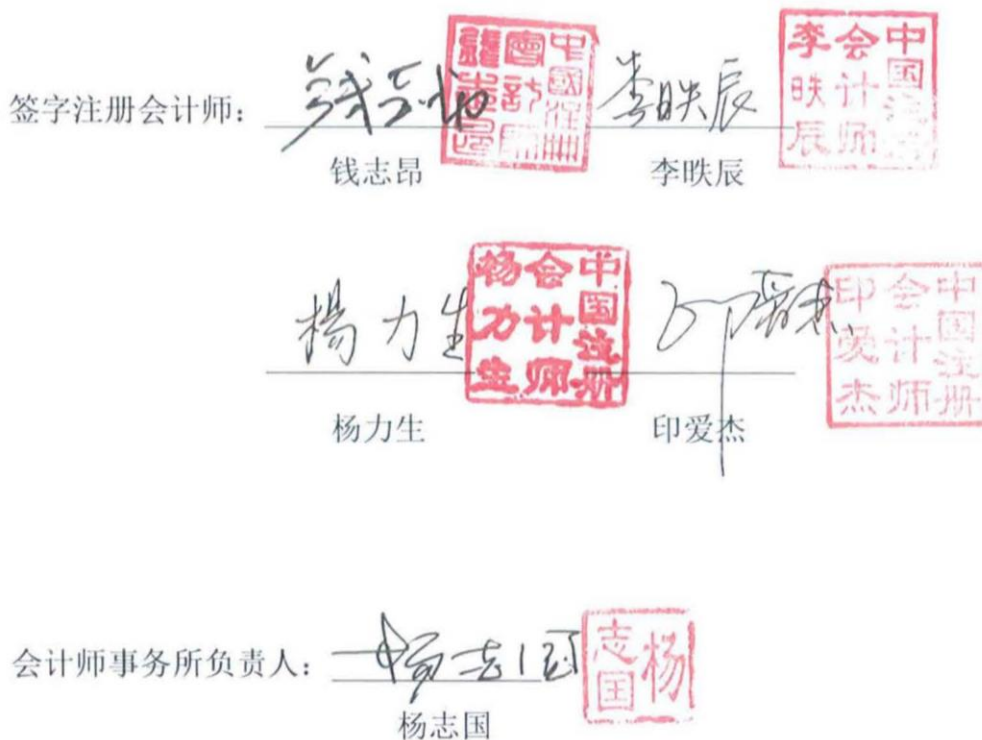 签字注册会计师：
钱志昂
李昳辰
中国注册会计师李昳辰
李昳辰
杨力生
中国注册会计师杨力生
印爱杰
中国注册会计师印爱杰
杨力生
印爱杰
会计师事务所负责人：
杨志国
杨志国
杨志国